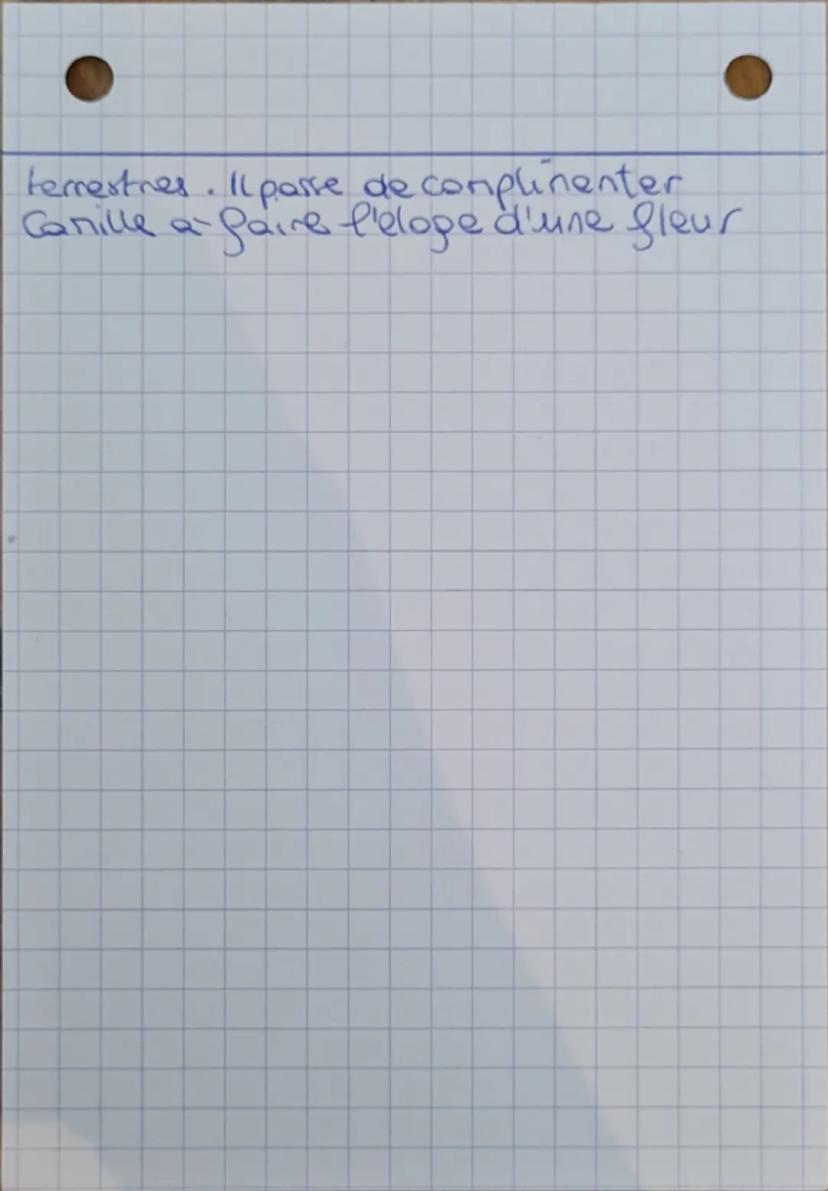 terrestres. Il passe de complimenter
Camille à faire l'éloge d'une fleur